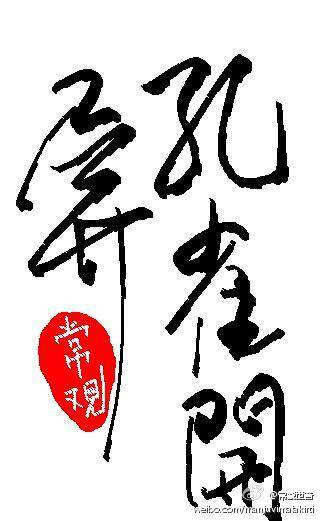 孔雀開
屏
常观
weibo.com/manjuvinatakirti